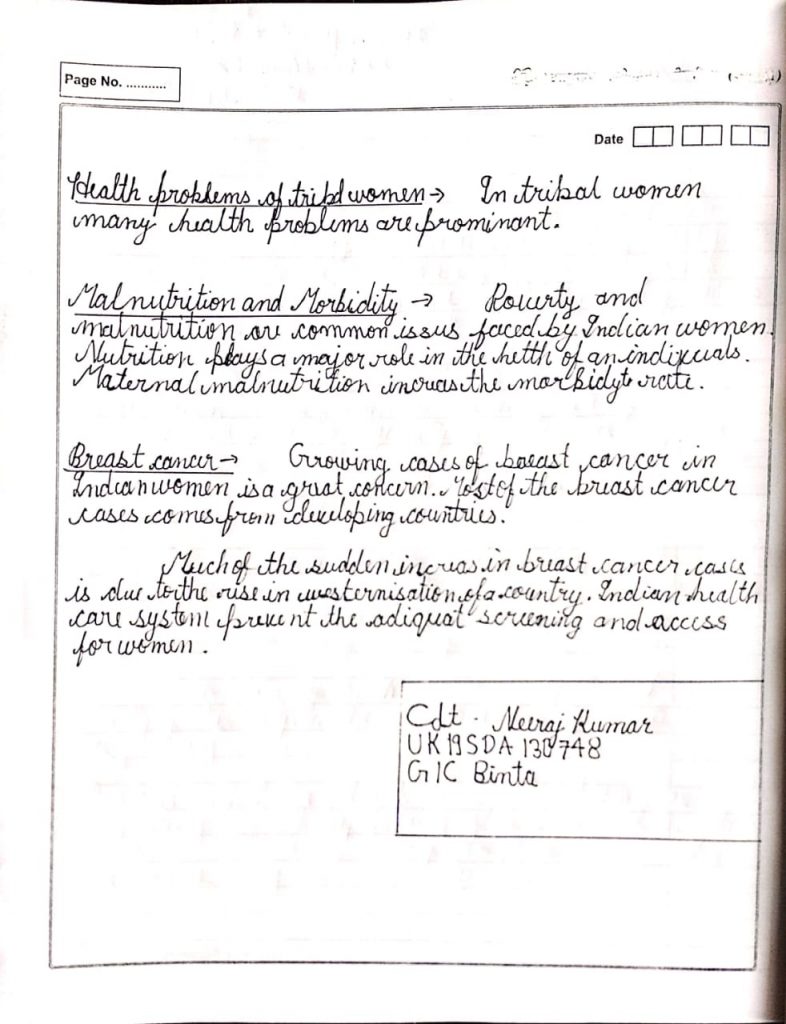 Page No. ...........
Date
Health problems of tribal women → In tribal women
many health problems are prominant.
Malnutrition and Morbidity → Poverty and
malnutrition are common issus faced by Indian women.
Nutrition plays a major role in the hetth of an indixuals.
Maternal malnutrition increas the morbidyty rate.
Breast cancer → Growing cases of breast cancer in
Indian women is a great concern. Most of the breast cancer
cases comes from developing countries.
Much of the sudden increas in breast cancer cases
is due to the rise in westernisation of a country. Indian health
care system prevent the adiquat screening and access
for women.
Cdt. Neeraj Kumar
UK19SDA130748
GIC Binta